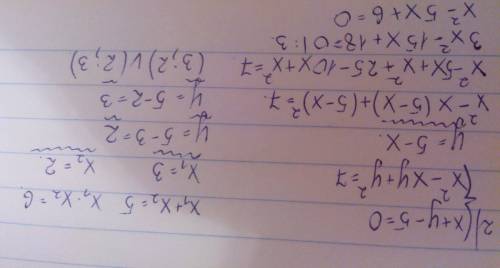 2) { x+y-5=0
x²-xy+y²=7
y=5-x
x²-x(5-x)+(5-x)²=7
x²-5x+x²+25-10x+x²=7
3x²-15x+18=0 |:3
x²-5x+6=0
x₁+x₂=5 x₁·x₂=6
x₁=3 x₂=2
y=5-3=2
y=5-2=3
(3;2) V (2;3)